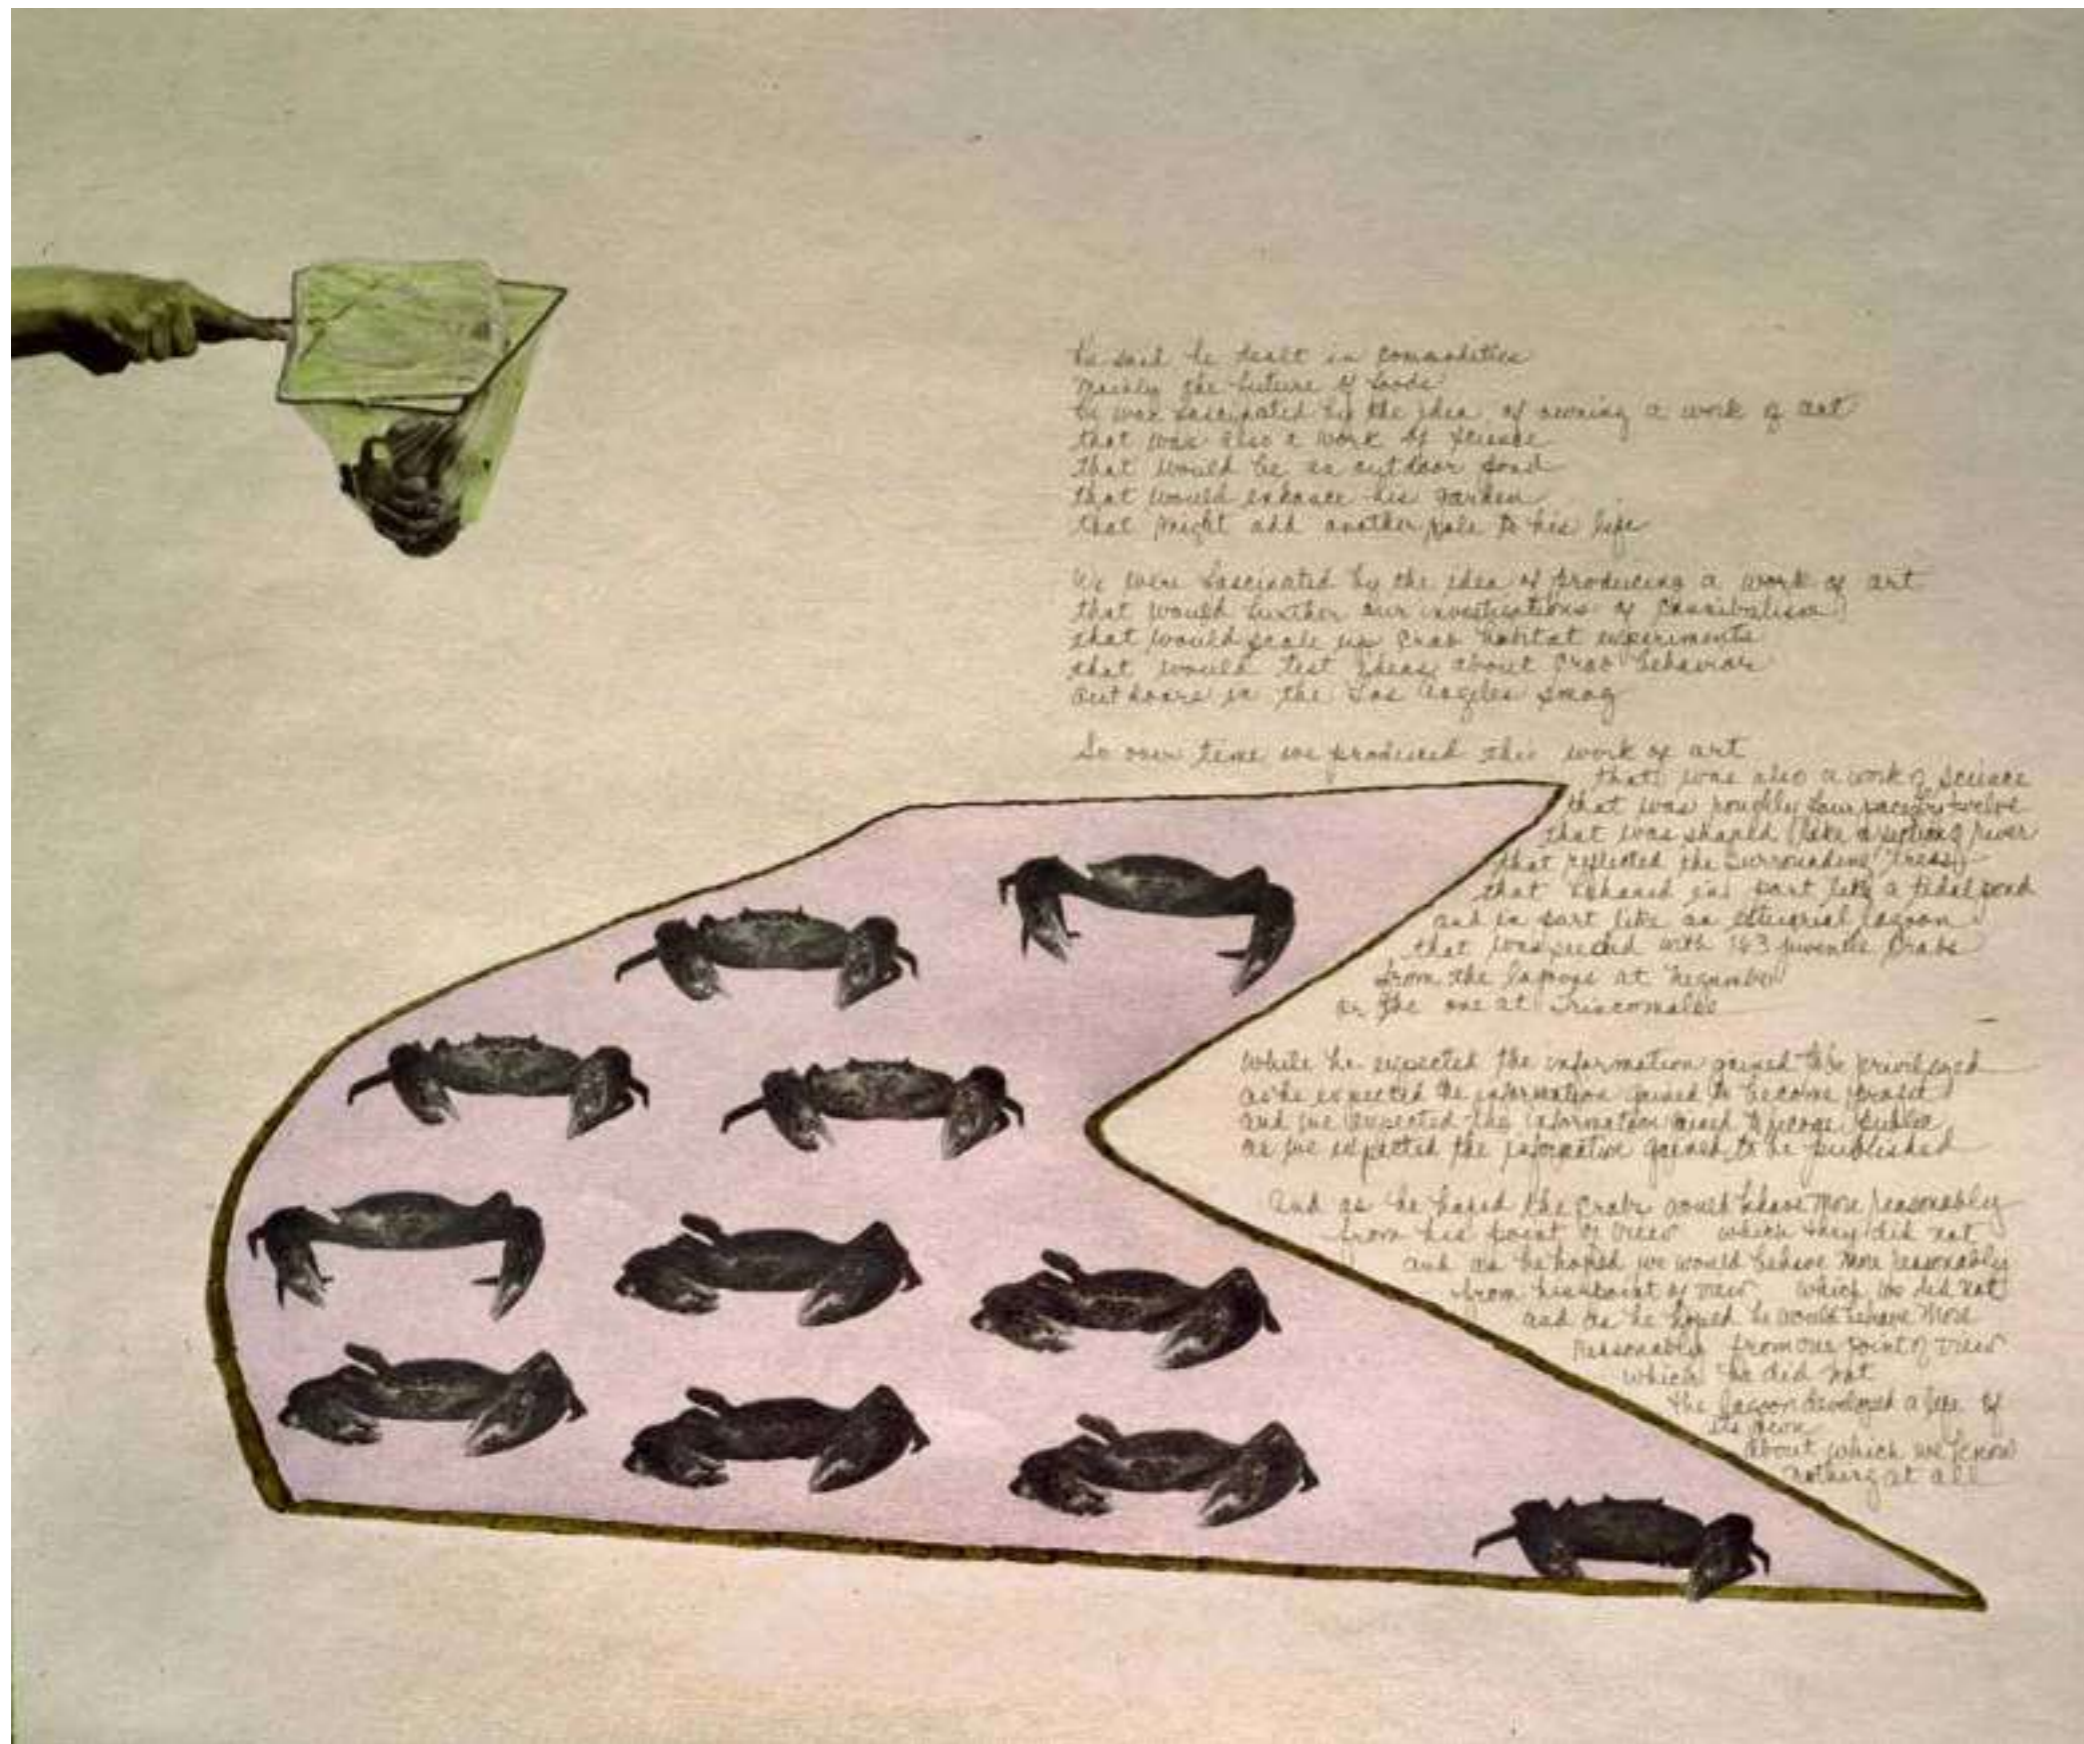 He said he dealt in commodities
Mainly the future of foods
he was fascinated by the idea of owning a work of art
that was also a work of science
that would be an outdoor pond
that would enhance his garden
that might add another pole to his life
We were fascinated by the idea of producing a work of art
that would further our investigations of Cannibalism
that would scale up Crab habitat experiments
that would test ideas about Crab behavior
outdoors in the Los Angeles smog
So over time we produced this work of art
that was also a work of science
that was roughly four paces twelve
that was shaped like a section river
that reflected the surrounding trees
that behaved in part like a tidal pond
and in part like an estuarial lagoon
that was seeded with 163 juvenile Crabs
from the lagoons at Negombo
or the one at Trincomalee
While he expected the information gained to be privileged
as he expected the information gained to become
and we expected the information gained to public
as we expected the information gained to be published
And as he hoped the Crabs would behave more reasonably
from his point of view which they did not
and as he hoped we would behave more reasonably
from his point of view which we did not
and as he hoped he would behave more
reasonably from our point of view
which he did not
the lagoon developed a life of
its own
about which we know
nothing at all